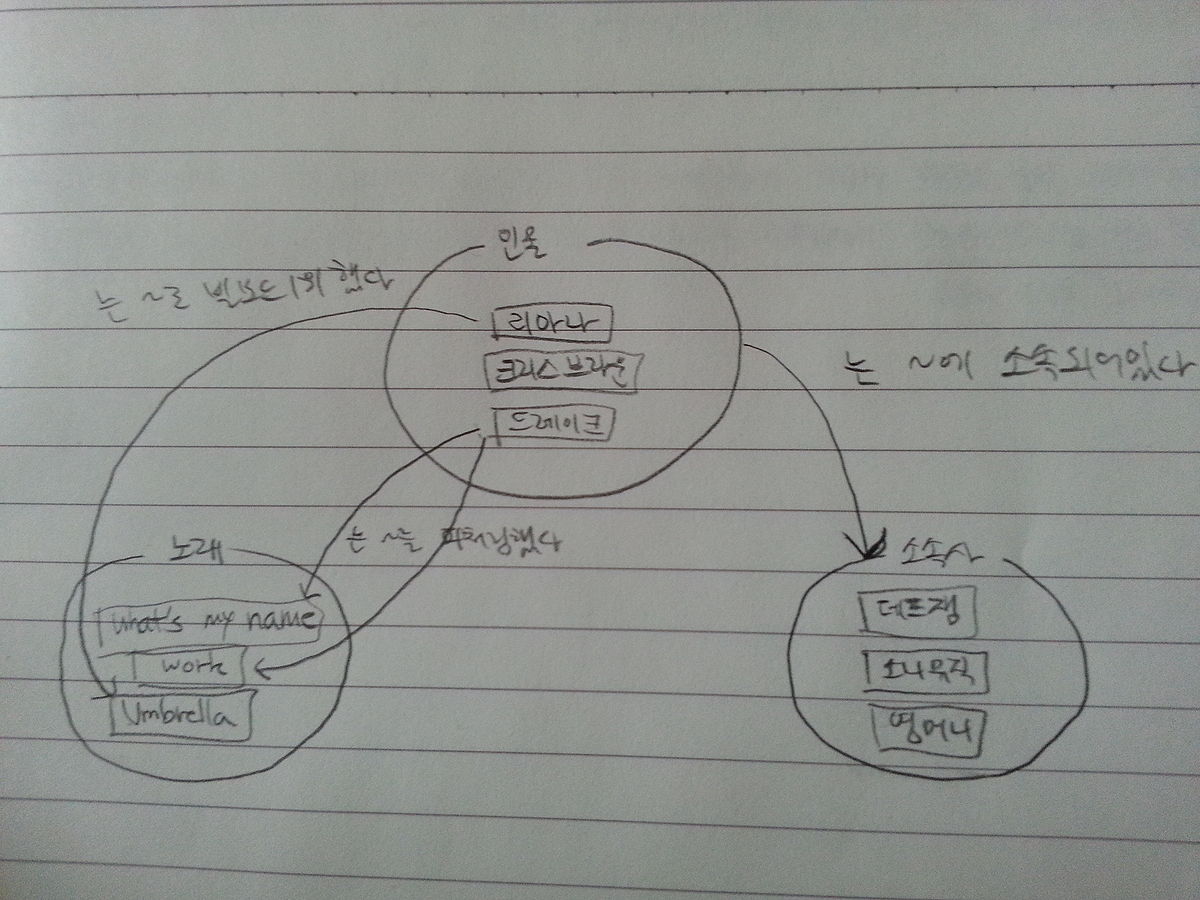 인물
는 ~로 빌보드1위 했다
리아나
크리스브라운
는 ~에 소속되어있다
드레이크
는 ~를 피처링했다
노래
소속사
What's my name
데프잼
work
소니뮤직
Umbrella
영머니